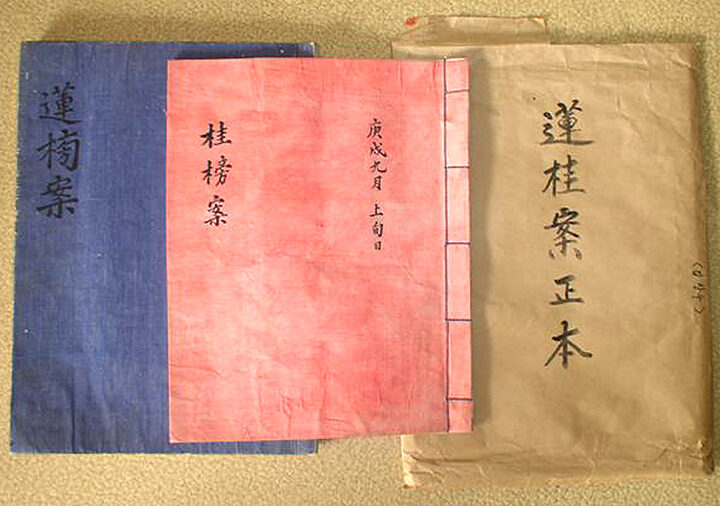 蓮桂案正本
庚戌九月 上旬日
桂榜案
蓮榜案